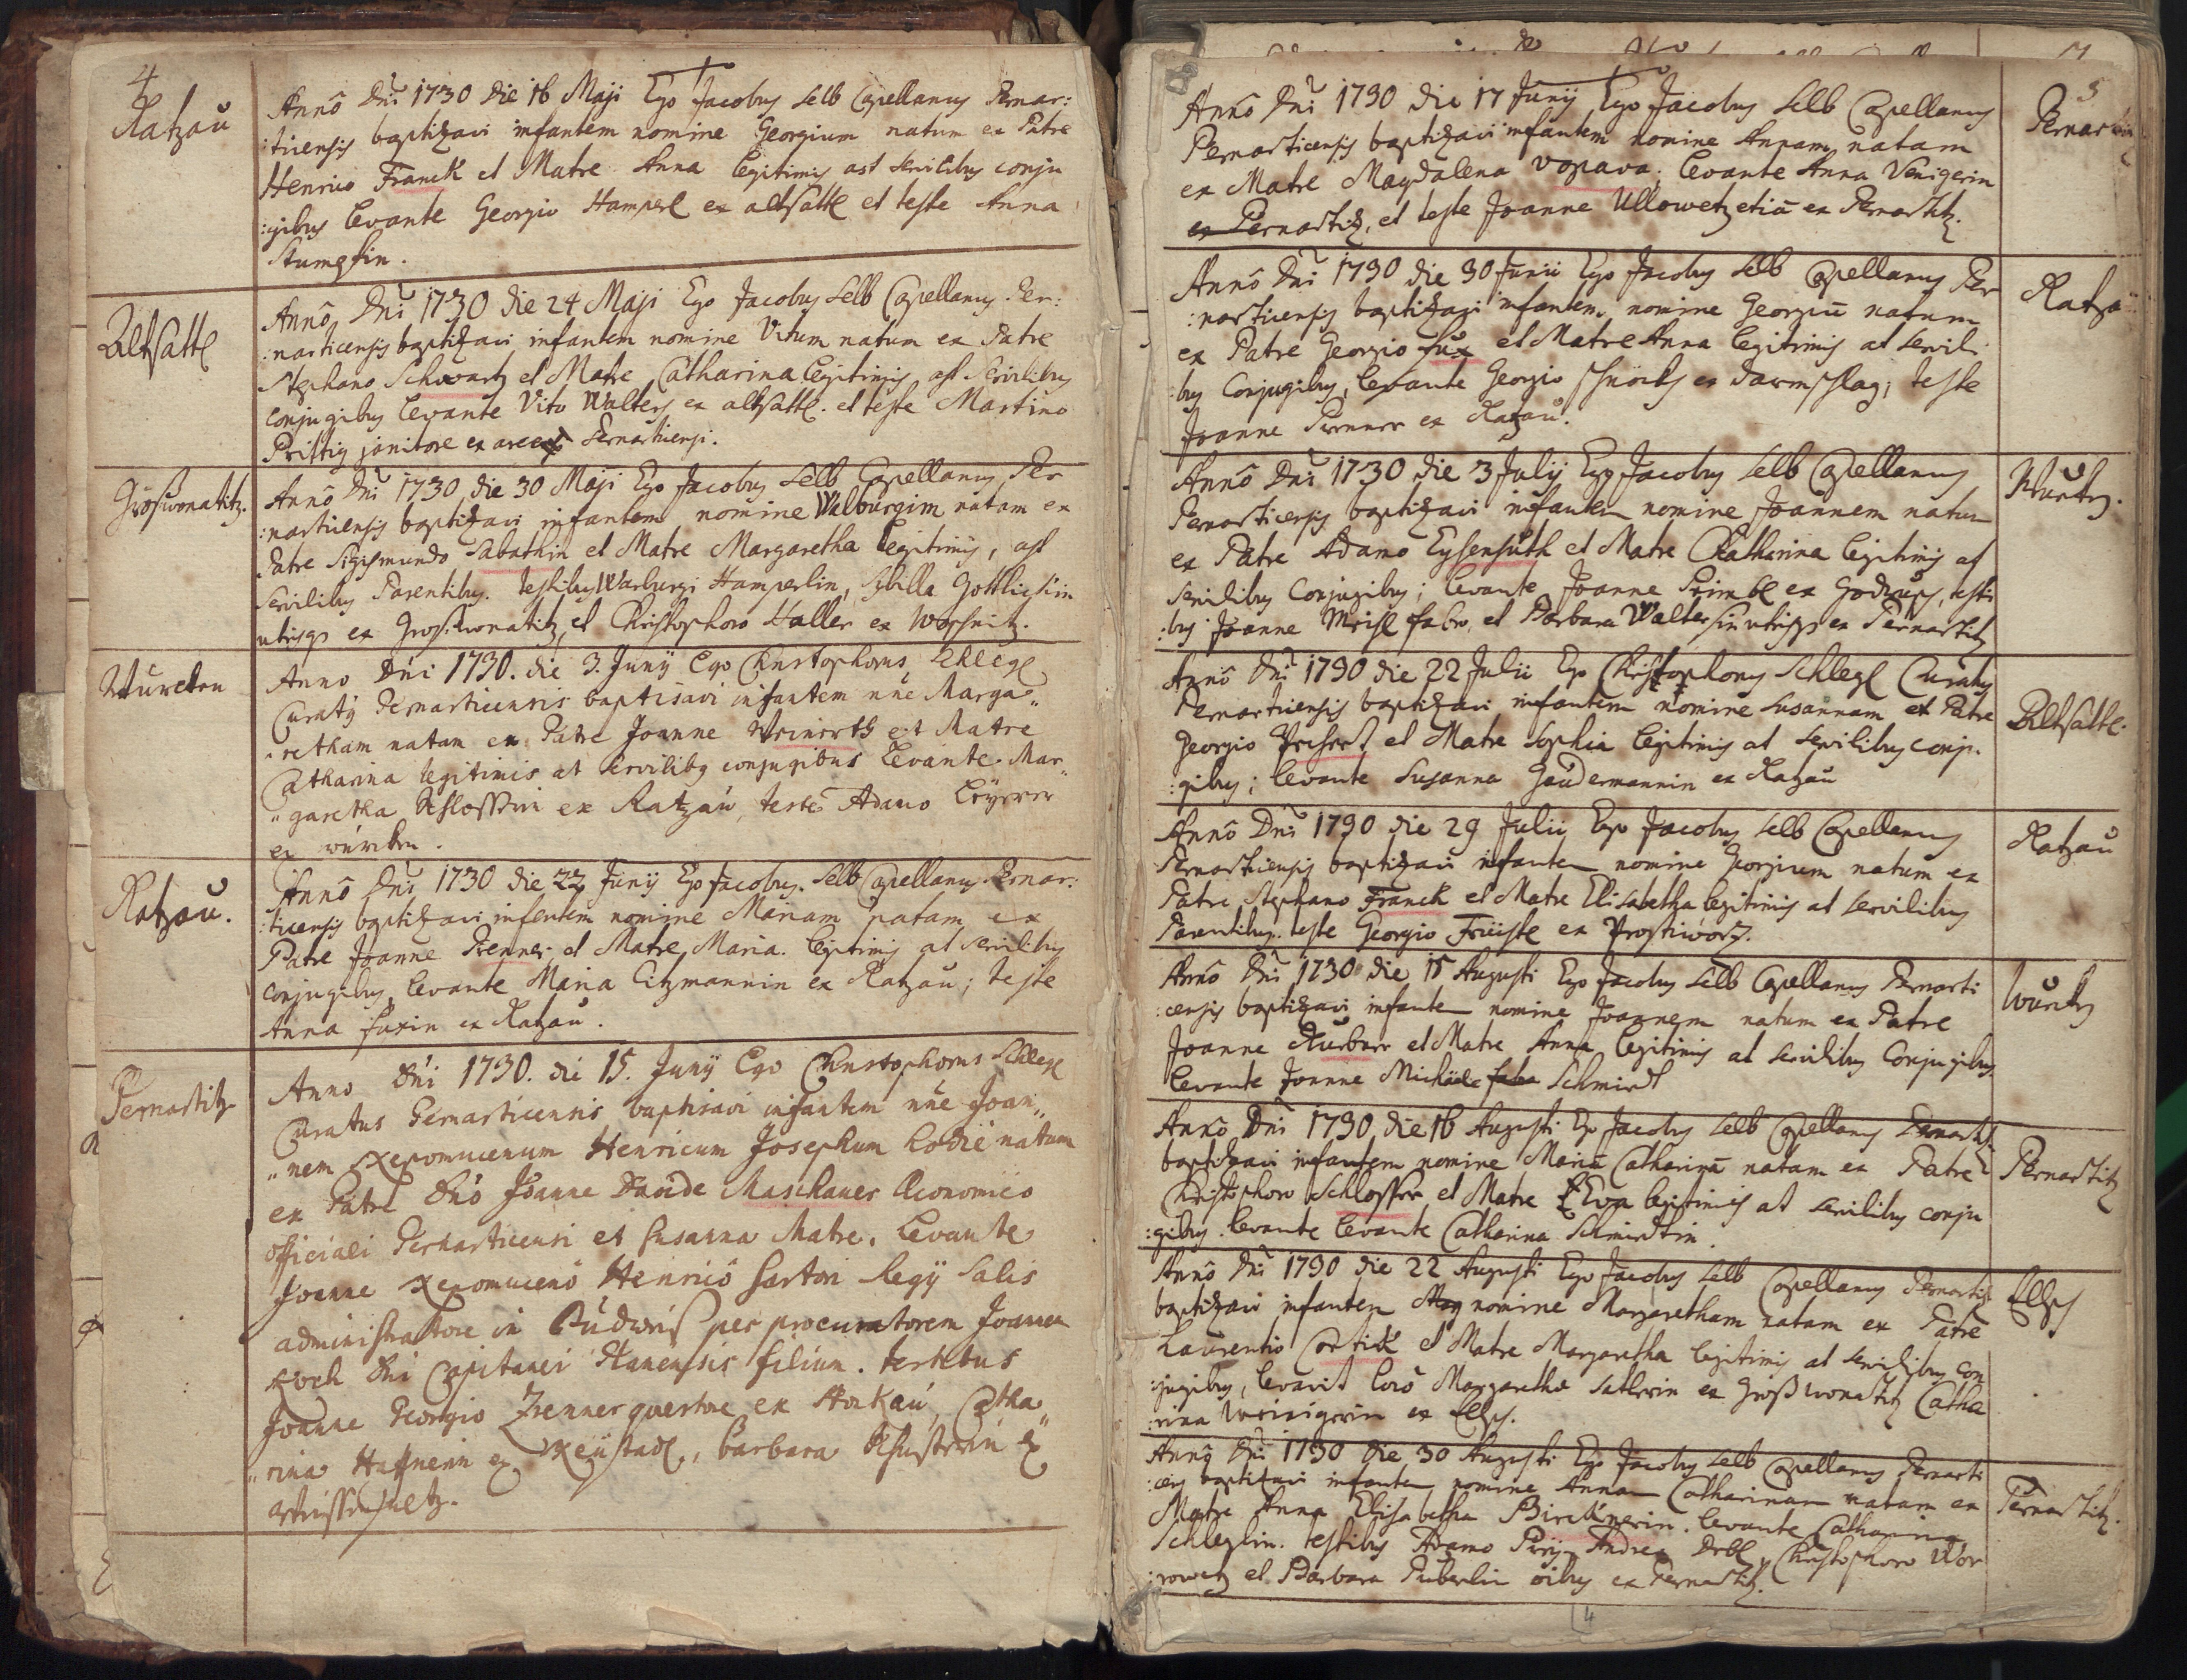 4
Ratzaŭ
Annô Dni 1730 die 16 Maji Ego Jacobus Selb Capellanus Pernar:
:ticensis baptizavi infantem nomine Georgium natum ex Patre
Henrico Franck et Matre Anna legitimis ast servilibus conju
:gibus levante Georgio Hamperl ex altsattl et teste Anna
Stumpfin.
Altsattl
Annô Dni 1730 die 24 Maji Ego Jacobus Selb Capellanus Per:
:narticensis baptizavi infantem nomine Vitum natum ex Patre
Stephano Schwartz et Matre Catharina legitimis ast servilibus
conjugibus levante Vito Walters ex altsattl. et teste Martino
Prittig janitore ex arce Pernarticensi.
Groswonatitz.
Annô Dni 1730 die 30 Maji Ego Jacobus Selb Capellanus Per
:narticensis baptizavi infantem nomine Walburgim natam ex
Patre Sigismundo Sabathin et Matre Margaretha legitimis, ast
servilibus Parentibus. testibus Warburgi Hamperlin, Sibilla
utrisque ex Groswonatitz, et Christophoro Haller ex Worsnitz.
Würcken
Anno Dni 1730. die 3. Junij Ego Christophorus Schlegl
Curatus Pernarticensis baptisavi infantem nne Marga„
„retham natam ex Patre Joanne Weinerth et Matre
Catharina legitimis at servilibus conjugibus levante Mar„
„garetha Schlosserin ex Ratzaú, teste Adamo
ex würcken.
Ratzaŭ.
Annô Dni 1730 die 22 Junij Ego Jacobus Selb Capellanus Pernar:
:ticensis baptizavi infantem nomine Mariam natam ex
Patre Joanne Prenner et Matre Maria legitimis at servilibus
conjugibus, levante Maria Citzmannin ex Ratzaŭ; teste
Anna Fuxin ex Ratzaŭ.
Pernartitz
Anno Dni 1730. die 15. Junij Ego Christophorus Schlegl
Curatus Pernarticensis baptisavi infantem nne Joan„
„nem Nepomucenum Henricum Josephum hodie natum
ex Patre Dno Joanne Davide Maschauer Oeconomico
officiali Pernarticensi et Susanna Matre. Levante
Joanne Nepomuceno Henrico Sartori Regij Salis
administratore in Budweis per procuratorem Joannem
Koch Dni Capitanei filium. testibus
Joanne Georgio Zrenner quaestore ex Hockaú, Catha„
„rina Haffnerin ex Neústadl, Barbara Schusterin ex

5
Annô Dni 1730 die 17 Junij Ego Jacobus Selb Capellanus
Pernarticensis baptizavi infantem nomine Annam natam
ex Matre Magdalena Vopava; levante Anna Venigerin
ex Pernartitz, et teste Joanne Ullowetz etiã ex Pernartitz.
Annô Dni 1730 die 30 Junii Ego Jacobus Selb Capellanus Per
:narticensis baptizavi infantem nomine Georgiũ natum
ex Patre Georgio Fŭx et Matre Anna legitimis at servili
:bus Conjugibus, levante Georgio ex Darmschlag; teste
Joanne Prenner ex Ratzaŭ.
Ratza
Annô Dni 1730 die 3 Julij Ego Jacobus Selb Capellanus
Pernarticensis baptizavi infantem nomine Joannem natum
ex Patre Adamo Eysenhŭth et Matre Catharina legitimis at
servilibus Conjugibus; levante Joanne ex Godrusch, testi
:bus Joanne Meisl fabro et Barbara Waltersin utrisque ex Pernartitz
Würcken.
Annô Dni 1730 die 22 Julii Ego Christophorus Schlegl Curatus
Pernarticensis baptizavi infantem nomine Susannam ex Patre
Georgio et Matre Sophia legitimis at servilibus conju:
:gibus; levante Susanna Gaŭdermannin ex Ratzaŭ
Altsattl.
Annô Dni 1730 die 29 Julii Ego Jacobus Selb Capellanus
Pernarticensis baptizavi infantem nomine Georgium natum ex
Patre Stephano Franck et Matre Elisabetha legitimis at servilibus
Parentibus. teste Georgio ex Prostiworz.
Ratzaŭ
Annô Dni 1730 die 15 Augusti Ego Jacobus Selb Capellanus Pernarti
:censis baptizavi infantem nomine Joannem natum ex Patre
Joanne et Matre Anna legitimis at servilibus Conjugibus.
levante Joanne Michaele Schmirdt
Annô Dni 1730 die 16 Augusti Ego Jacobus Selb Capellanus Pernarti.
baptizavi infantem nomine Mariã Catharinã natam ex Patre
Christophoro Schlosser et Matre Eva legitimis at servilibus conju
:gibus. levante levante Catharina Schmirdtin.
Pernartitz
Annô Dni 1730 die 22 Augusti Ego Jacobus Selb Capellanus Pernarti
baptizavi infantem nomine Margaretham natam ex Patre
Laurentio Cortick et Matre Margaretha legitimis at servilibus con
:jugibus, levavit locô Margaretha Sattlerin ex Großwonatitz Catha
:rina Weinigerin ex
Annô Dni 1730 die 30 Augusti Ego Jacobus Selb Capellanus Pernarti
:censis baptizavi infantem nomine Annam Catharinam natam ex
Matre Anna Elisabetha Bircknerin. levante Catharina
Schleglin. testibus Adamo Andrea Christophoro Wor
:rowetz et Barbara Puberlin oibus ex Pernartitz.
Pernartitz.
4